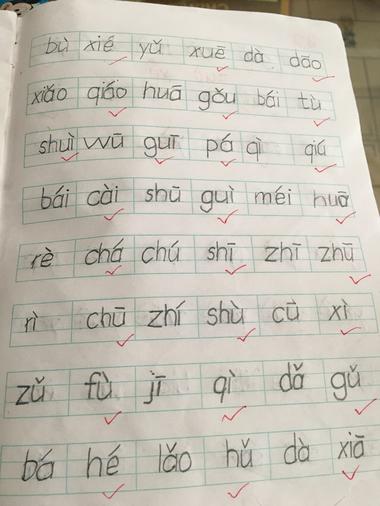 bù xié yǔ xuē dà dāo
xiǎo qiáo huā gǒu bái tù
shuì wū guī pá qì qiú
bái cài shū guì méi huā
rè chá chú shī zhī zhū
rì chū zhí shù cū xì
zǔ fù jī qì dǎ gǔ
bá hé lǎo hǔ dà xiā